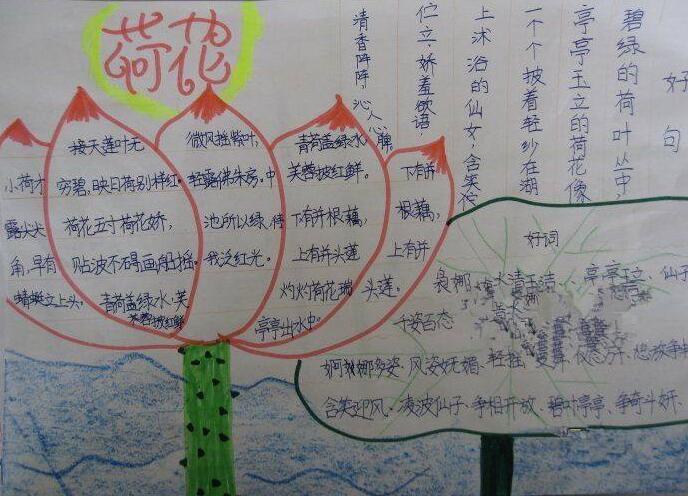 荷花
小荷才
露尖尖
角,早有
蜻蜓立上头。
接天莲叶无
穷碧,映日荷别样红。
荷花五寸荷花娇,
贴波不碍画船摇。
青荷盖绿水,芙
蓉披红鲜
微风摇紫叶,
轻露拂朱房。中
池所以绿,待
我泛红光。
青荷盖绿水,
芙蓉披红鲜。
下有并根藕,
上有并头莲
灼灼荷花瑞,
亭亭出水中。
下有并
根藕,
上有并
头莲。
好句
碧绿的荷叶丛中,
亭亭玉立的荷花像
一个个披着轻纱在湖
上沐浴的仙女,含笑伫
伫立,娇羞欲语,
清香阵阵,沁人心脾
好词
袅娜、水清玉洁、亭亭玉立、仙子
千姿百态
婀娜多姿、风姿妩媚、轻摇
含笑迎风、凌波仙子、争相开放、碧叶亭亭、争奇斗妍、